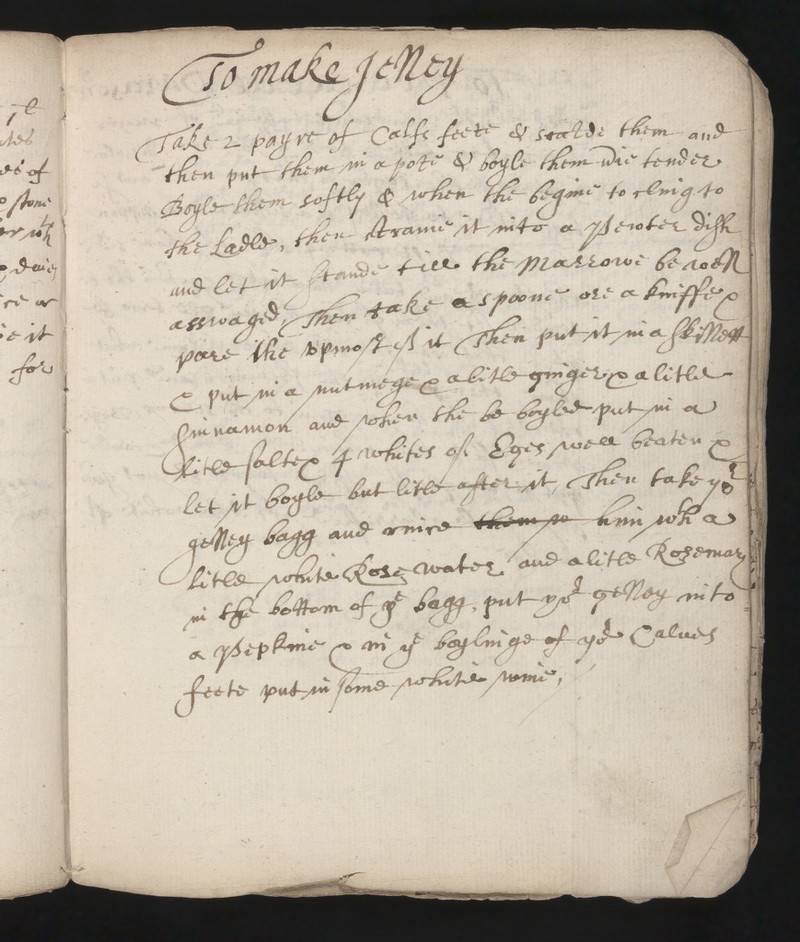 ye
ates
ees of
stone
er wth
ce or
ie it
for
To make Jelley
Take 2 payre of Calfs feete & scalde them and
then put them in a pote & boyle them tender
Boyle them softly & when the begine to cling to
the Ladle, then straine it into a Pewter dish
and let it stande till the Marrowe be well
asswaged Then take a spoone ore a kniffe &
pare the upmost of it Then put it in a Skillett
& put in a nutmege & a litle ginger & a litle
Sinnamon and when the be boyled put in a
litle salte & 4 whites of Eges well beaten &
let it boyle but litle after it, Then take yor
gelley bagg and rince them w him wth a
litle white Rose water and a litle Rosemary
in the bottom of ye bagg, put yor gelley into
a Pepkine & in ye boylinge of yor Calves
feete put in some white wine,